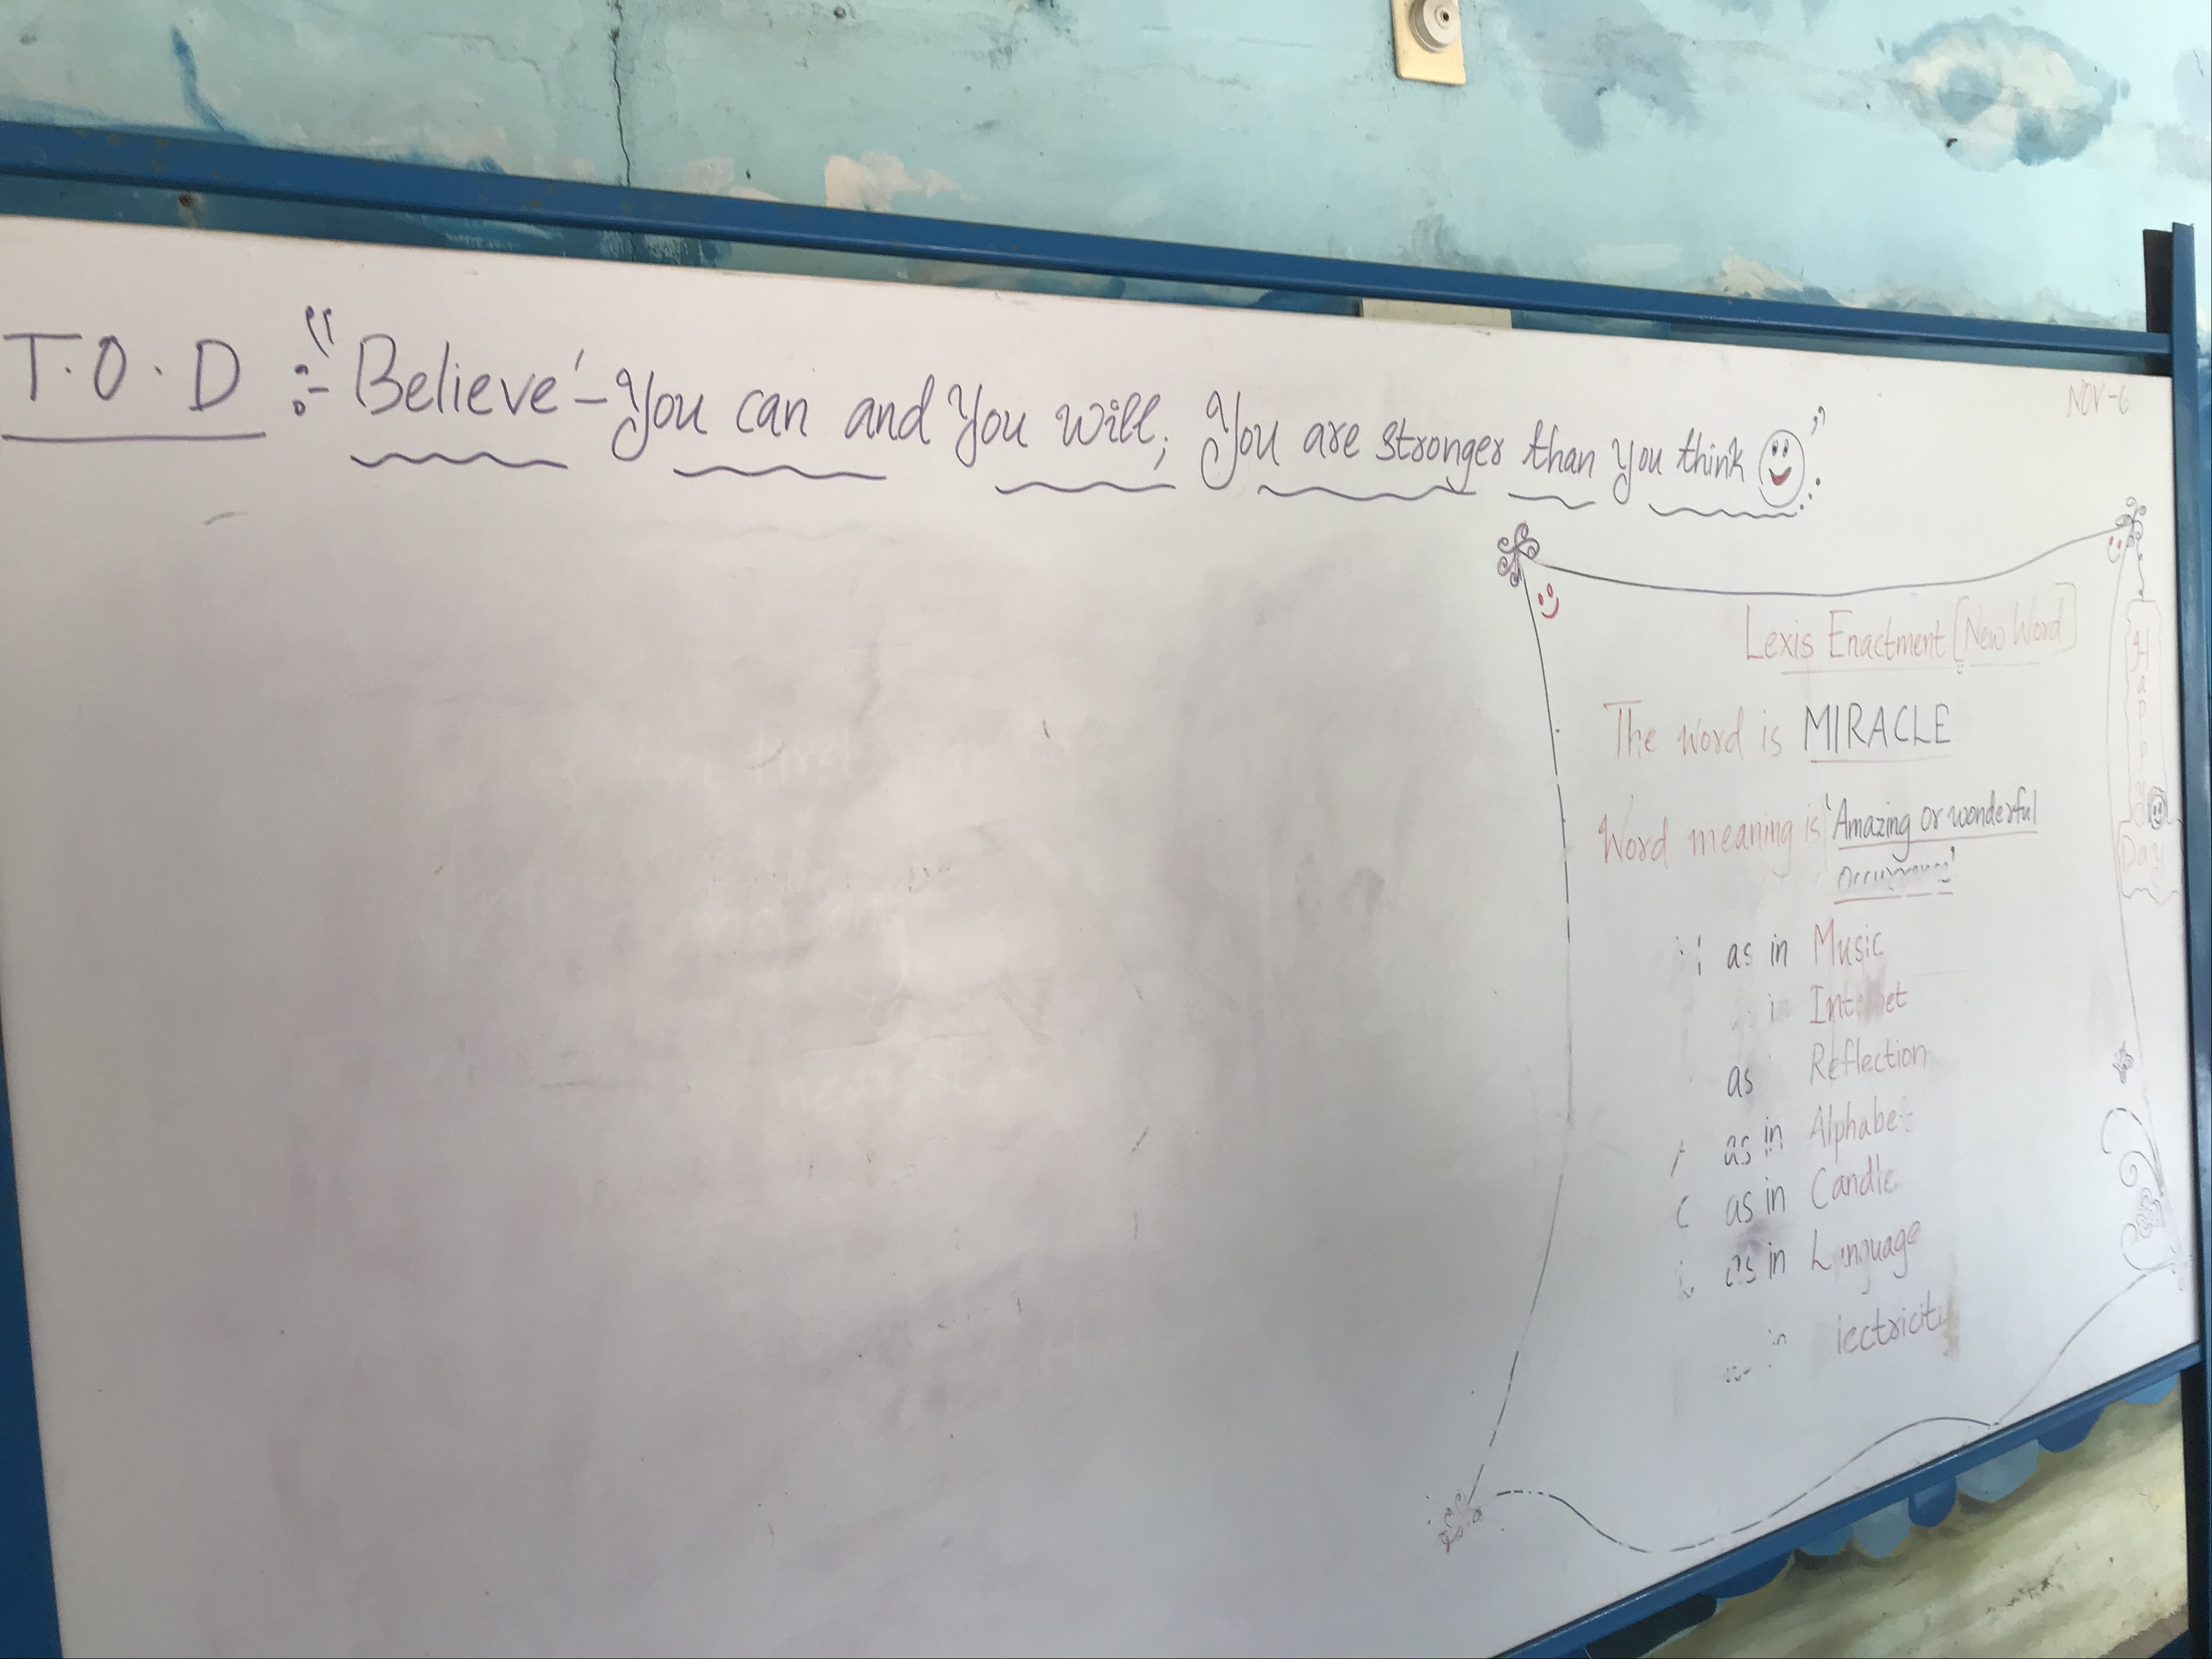 T.O.D :- "'Believe'- You can and You will; You are stronger than you think"
NOV-6
Lexis Enactment [New Word]
The word is MIRACLE
Word meaning is 'Amazing or wonderful
occurrence'
as in Music
Internet
as Reflection
as in Alphabet
C as in Candle
L as in Language
in lectricity
Happy
Day